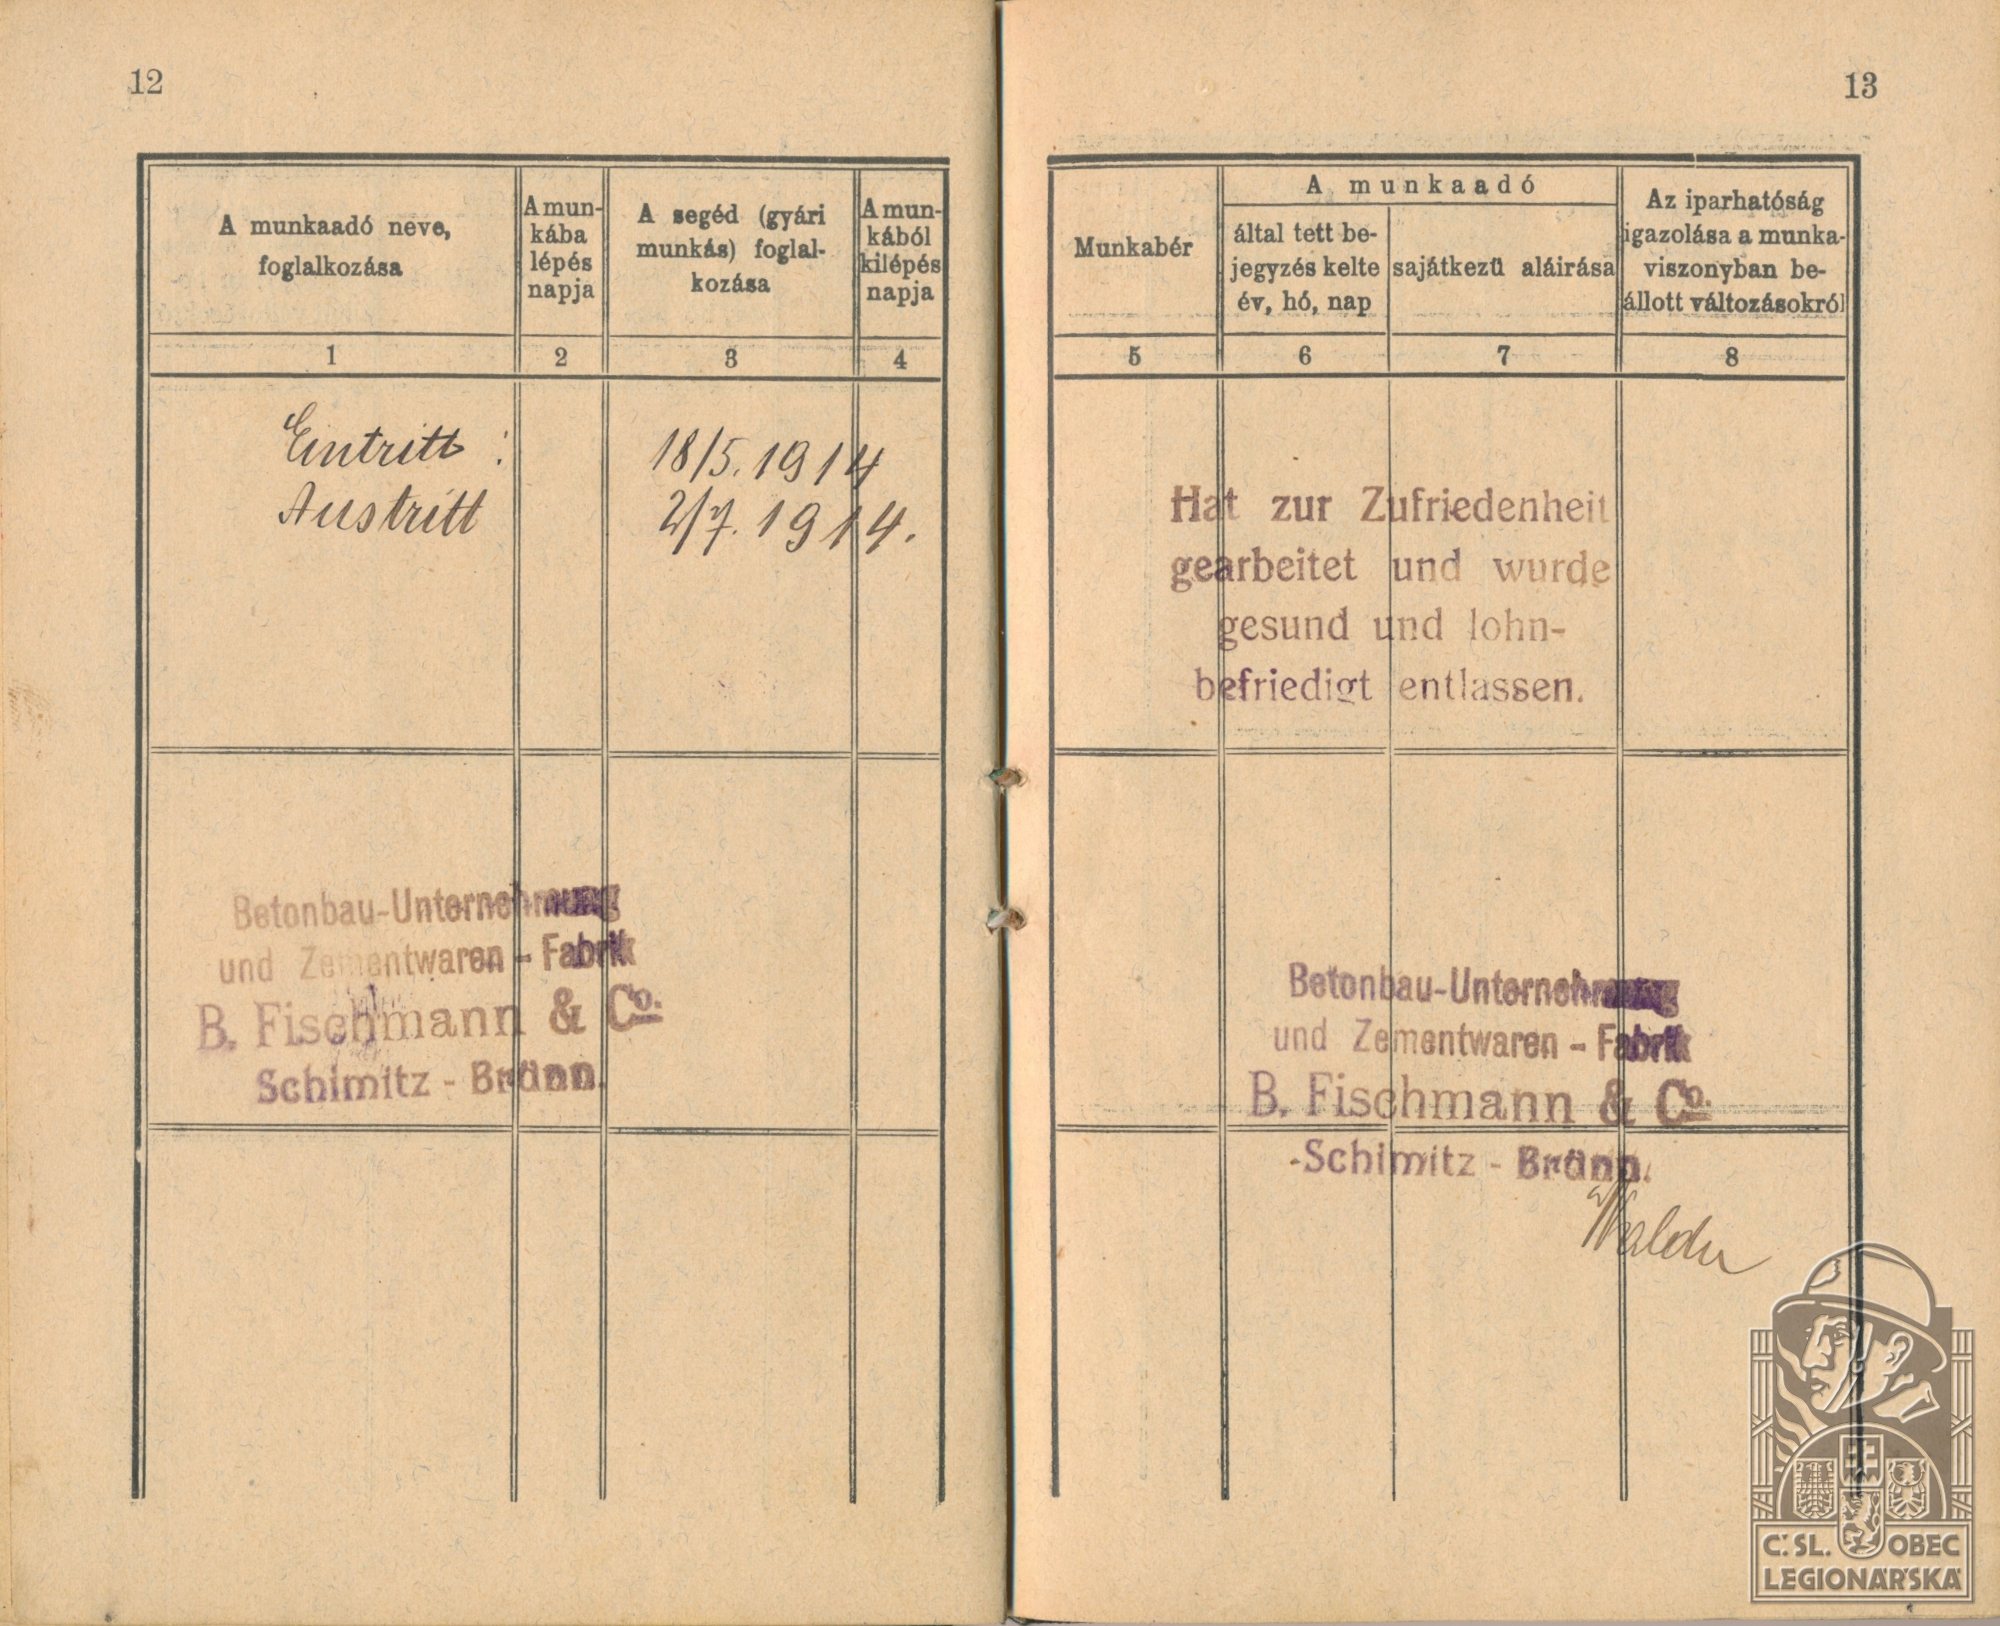 12
A munkaadó neve,
foglalkozása
A mun-
kába
lépés
napja
A segéd (gyári
munkás) foglal-
kozása
A mun-
kából
kilépés
napja
1
2
3
4
Eintritt : 18/5. 1914
Austritt 2/7. 1914.
Betonbau-Unternehmung
und Zementwaren - Fabrik
B. Fischmann & Co.
Schimitz - Brünn.
13
Munkabér
A munkaadó
által tett be-
jegyzés kelte
év, hó, nap
sajátkezű aláirása
Az iparhatóság
igazolása a munka-
viszonyban be-
állott változásokról
5
6
7
8
Hat zur Zufriedenheit
gearbeitet und wurde
gesund und lohn-
befriedigt entlassen.
Betonbau-Unternehmung
und Zementwaren - Fabrik
B. Fischmann & Co.
-Schimitz - Brünn.
Č.SL. OBEC
LEGIONÁŘSKÁ